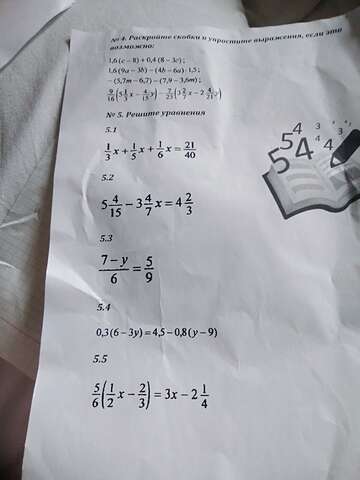 № 4. Раскройте скобки и упростите выражения, если это
возможно:
1,6 (c – 8) + 0,4 (8 – 3c) ;
1,6 (9a – 3b) – (4b – 6a) · 1,5 ;
– (5,7m – 6,7) – (7,9 – 3,6m) ;
9/16 (5 1/3 x – 4/15 y) – 7/23 (3 2/7 x – 2 4/21 y)
№ 5. Решите уравнения
5.1
1/3 x + 1/5 x + 1/6 x = 21/40
5.2
5 4/15 – 3 4/7 x = 4 2/3
5.3
(7 – y)/6 = 5/9
5.4
0,3 (6 – 3y) = 4,5 – 0,8 (y – 9)
5.5
5/6 (1/2 x – 2/3) = 3x – 2 1/4
5 4 5 4 4 3 4 3